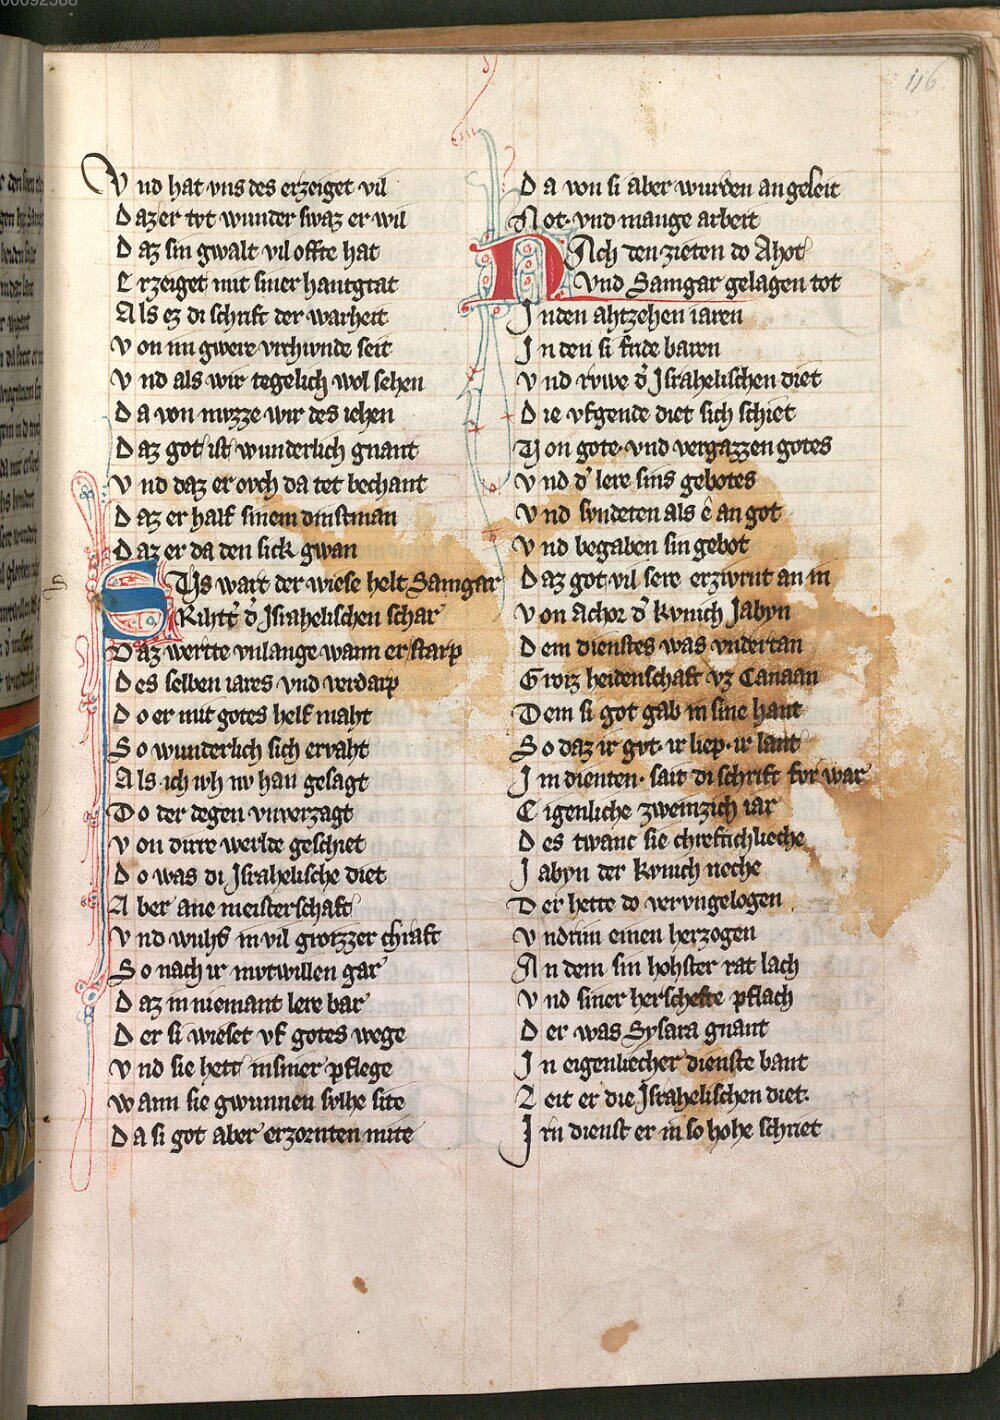 00092588
116
V nd hat vns des erzeiget vil
D az er tvt wunder swaz er wil
D az sin gwalt vil offte hat
E rzeiget mit siner hantgtat
A ls ez di schrift der warheit
V on im gwere vrchvnde seit
V nd als wir tegelich wol sehen
D a von mvzze wir des iehen
D az got ist wunderlich gnant
V nd daz er ovch da tet bechant
D az er half sinem dinstman
D az er da den sick gwan
SUs wart der wiese helt Samgar
Rihtt' d' Jsrahelischen schar
D az wertte vnlange wann er starp
D es selben iares vnd verdarp
D o er mit gotes helf maht
S o wunderlich sich ervaht
A ls ich iwh nv han gesagt
D o der degen vnverzagt
V on dirre werlde geschiet
D o was di Jsrahelische diet
A ber ane meisterschaft
V nd wuhs in vil grozzer chraft
S o nach ir mvtwillen gar
D az in niemant lere bar
D er si wieset vf gotes wege
V nd sie hett in siner pflege
W ann sie gwunnen svlhe site
D a si got aber erzornten mite
D a von si aber wurden an geleit
N ot· vnd mange arbeit
NAch den zieten do Ahot
Vnd Samgar gelagen tot
J n den ahtzehen iaren
J n den si fride baren
V nd rvwe d' Jsrahelischen diet
D ie vfgende diet sich schiet
V on gote· vnd vergazzen gotes
V nd d' lere sins gebotes
V nd svndeten als ê an got
V nd begaben sin gebot
D az got vil sere erzwrnt an in
V on Achor d' kvnich Jabyn
D em dienstes was vndertan
G roiz heidenschaft vz Canaan
D em si got gab in sine hant
S o daz ir gvt· ir liep· ir lant
J m dienten· sait di schrift fvr war
E igenliche zweinzich iar
D es twanc sie chreftichlieche
J abyn der kvnich reche
D er hette do vervngelogen
V ndrim einen herzogen
A n dem sin hohster rat lach
V nd siner herschefte pflach
D er was Sysara gnant
J n eigenliecher dienste bant
L eit er die Jsrahelischen diet·
J rn dienst er in so hohe schriet